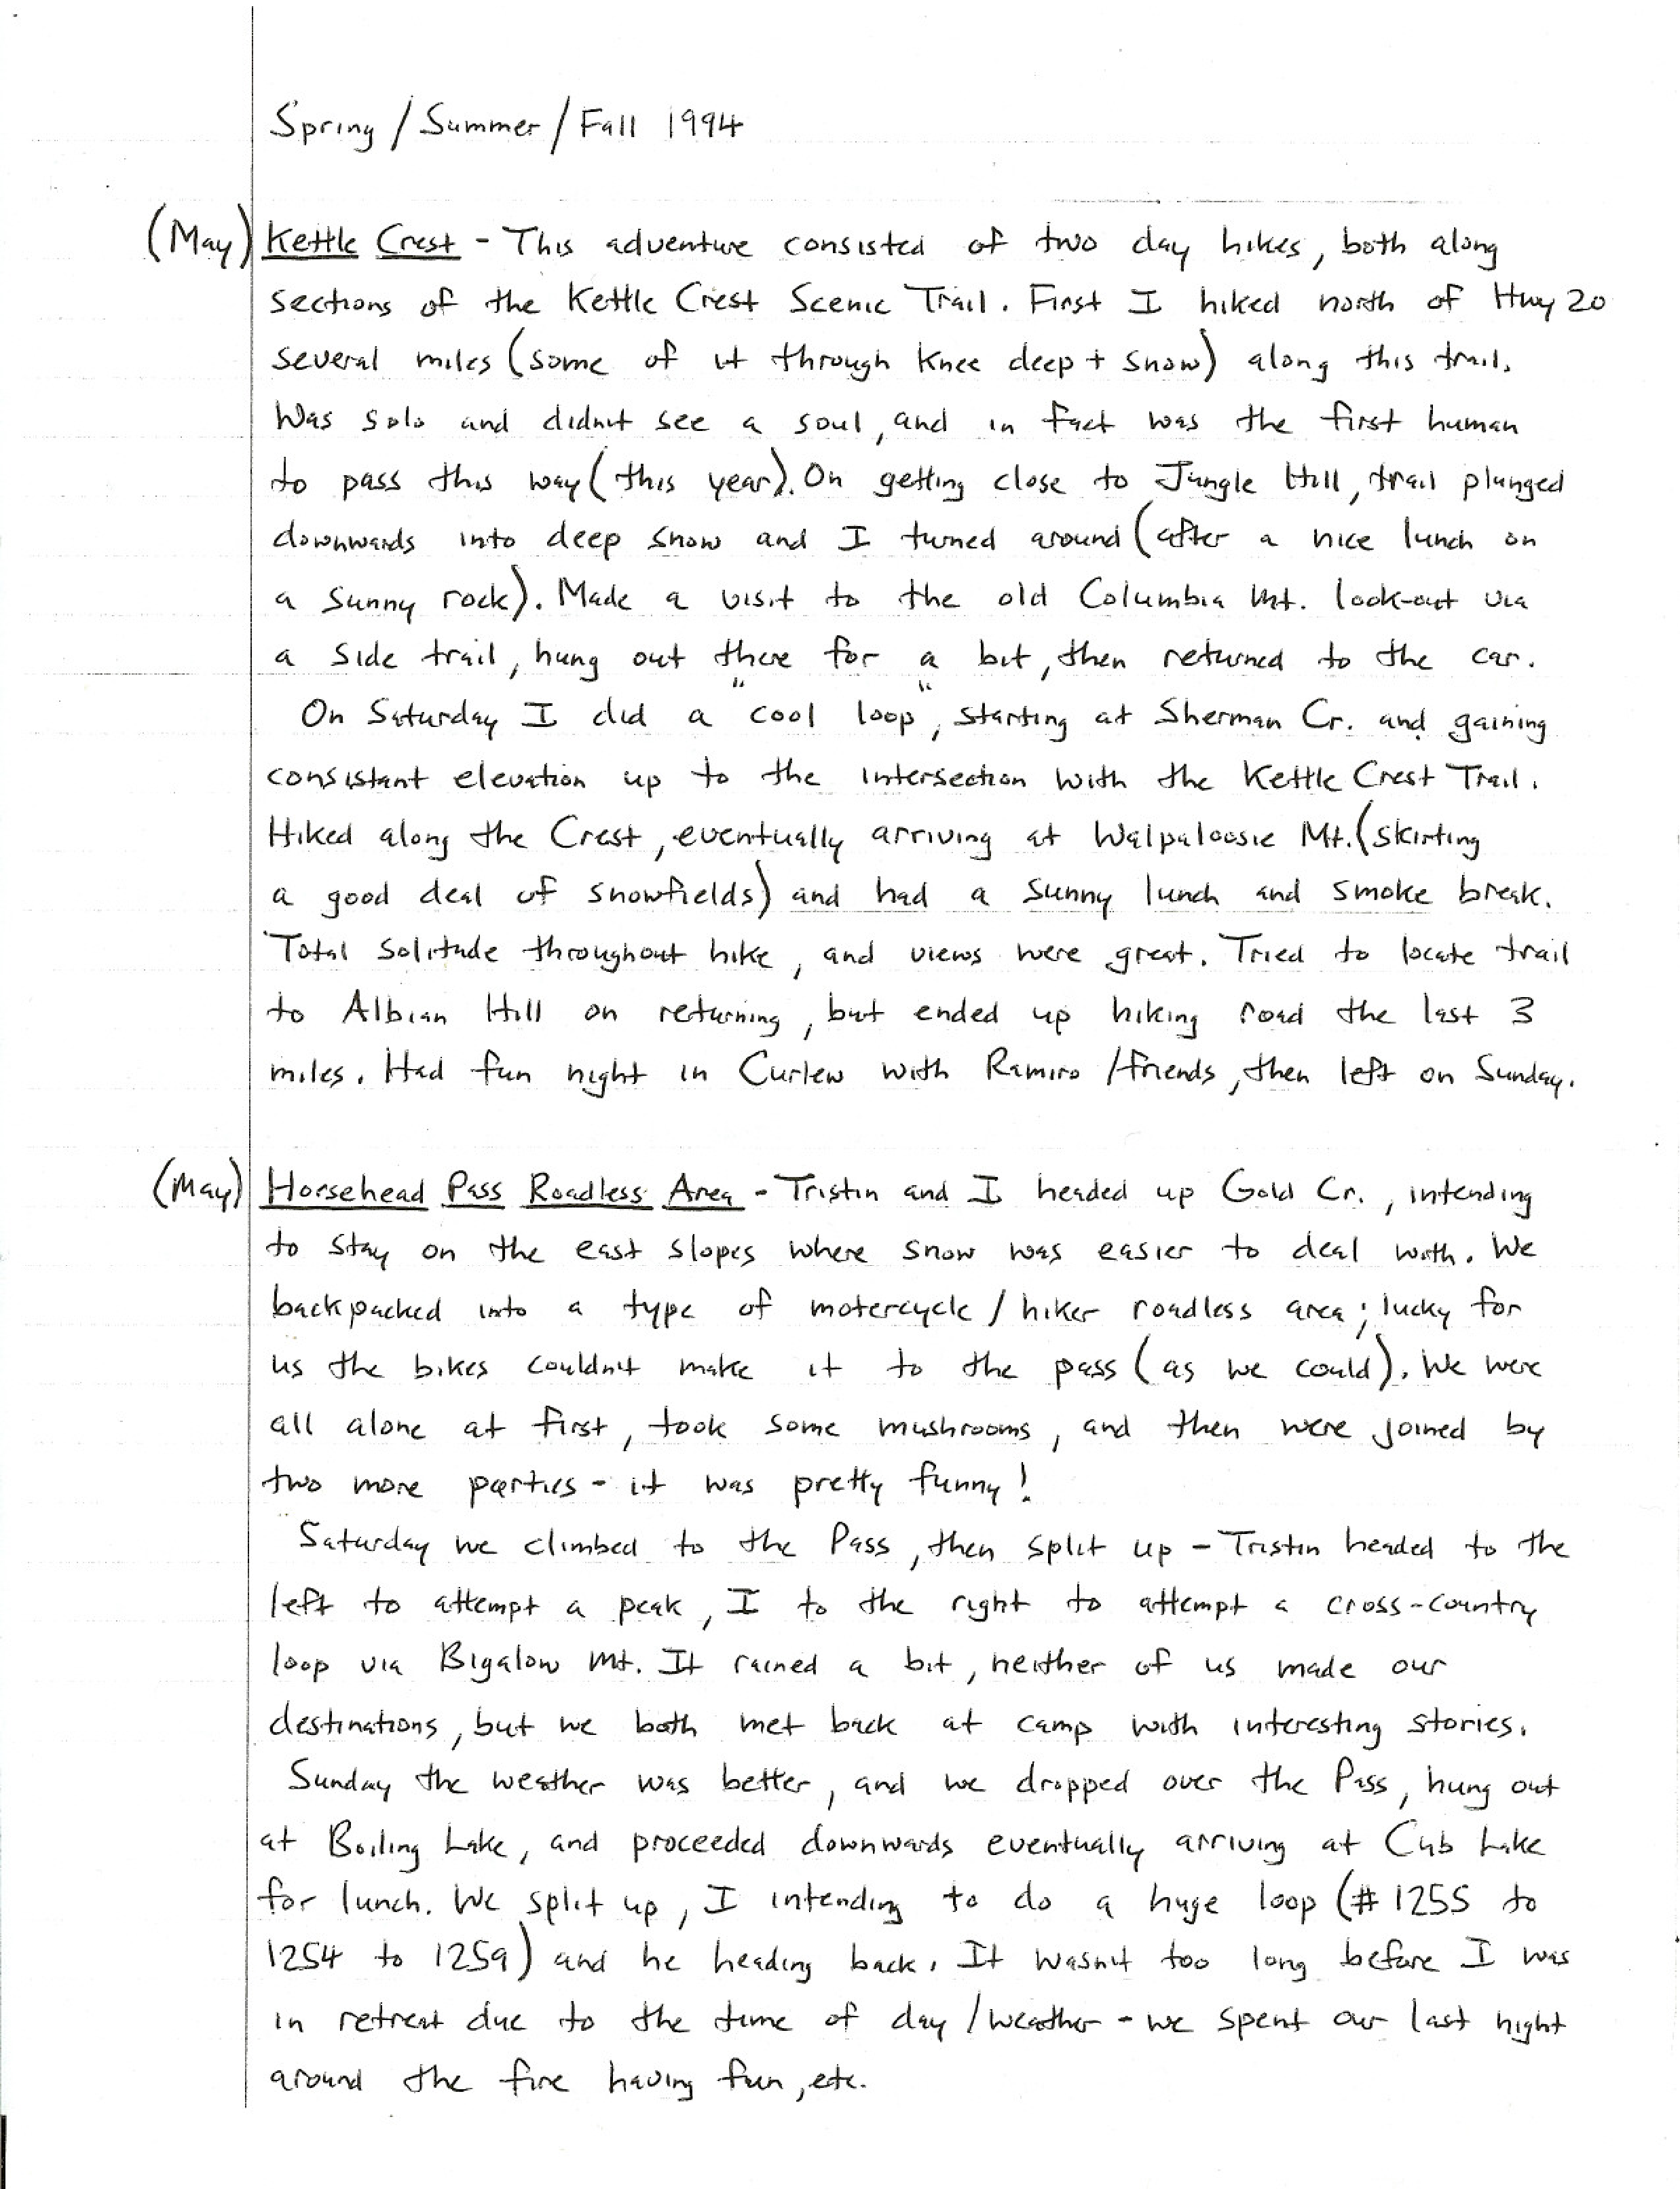 Spring / Summer / Fall 1994
(May) Kettle Crest - This adventure consisted of two day hikes, both along
sections of the Kettle Crest Scenic Trail. First I hiked north of Hwy 20
several miles (some of it through knee deep + snow) along this trail.
Was solo and didn't see a soul, and in fact was the first human
to pass this way (this year). On getting close to Jungle Hill, trail plunged
downwards into deep snow and I turned around (after a nice lunch on
a sunny rock). Made a visit to the old Columbia Mt. look-out via
a side trail, hung out there for a bit, then returned to the car.
On Saturday I did a "cool loop", starting at Sherman Cr. and gaining
consistant elevation up to the intersection with the Kettle Crest Trail.
Hiked along the Crest, eventually arriving at Walpaloosie Mt. (skirting
a good deal of snowfields) and had a sunny lunch and smoke break.
Total solitude throughout hike, and views were great. Tried to locate trail
to Albian Hill on returning, but ended up hiking road the last 3
miles. Had fun night in Curlew with Ramiro / friends, then left on Sunday.
(May) Horsehead Pass Roadless Area - Tristin and I headed up Gold Cr., intending
to stay on the east slopes where snow was easier to deal with. We
backpacked into a type of motercycle / hiker roadless area; lucky for
us the bikes couldn't make it to the pass (as we could). We were
all alone at first, took some mushrooms, and then were joined by
two more parties - it was pretty funny!
Saturday we climbed to the Pass, then split up - Tristin headed to the
left to attempt a peak, I to the right to attempt a cross-country
loop via Bigalow Mt. It rained a bit, neither of us made our
destinations, but we both met back at camp with interesting stories.
Sunday the weather was better, and we dropped over the Pass, hung out
at Boiling Lake, and proceeded downwards eventually arriving at Cub Lake
for lunch. We split up, I intending to do a huge loop (# 1255 to
1254 to 1259) and he heading back. It wasn't too long before I was
in retreat due to the time of day / weather - we spent our last night
around the fire having fun, etc.